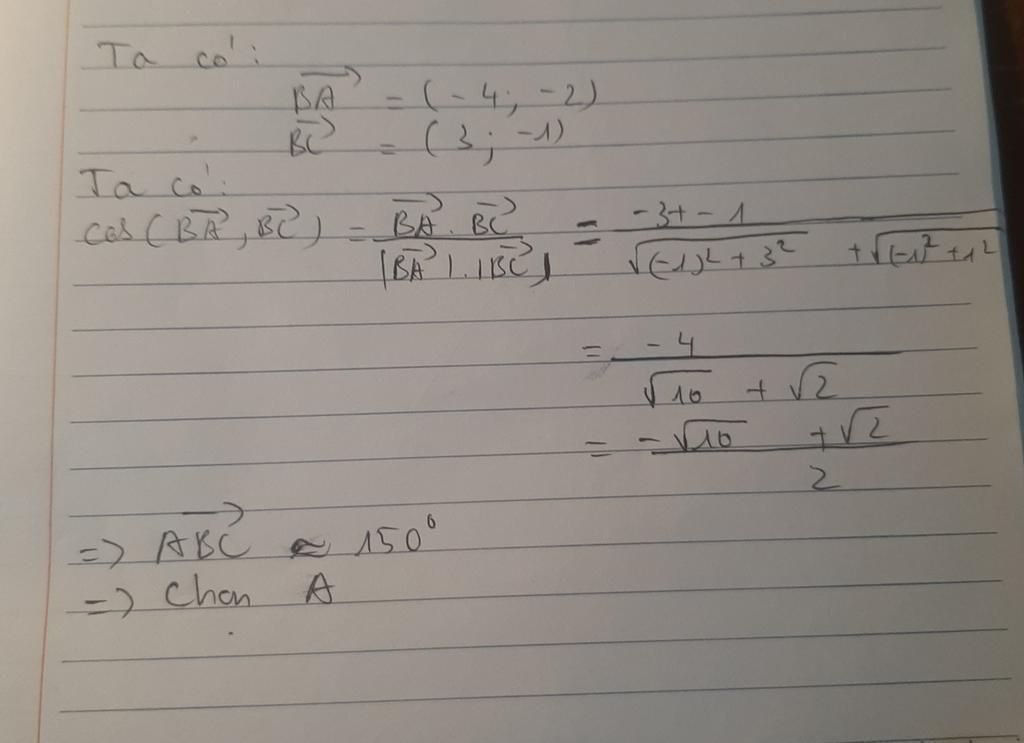 Ta có:
BA = (-4; -2)
BC = (3; -1)
Ta có:
cos(BA, BC) = BA . BC / |BA|.|BC| = -3+-1 / √(-1)²+3² + √(-1)²+1²
= -4 / √10 + √2
= -√10 + √2 / 2
=> ABC ≈ 150°
=> Chọn A